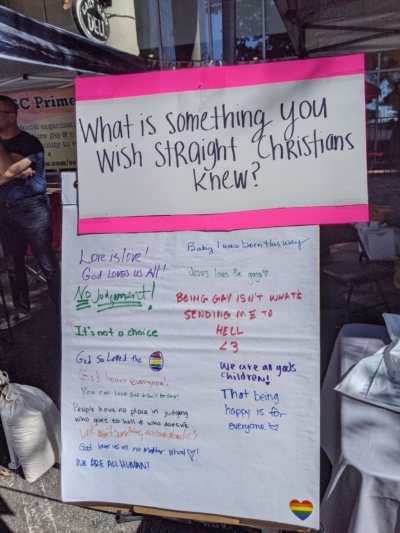 DELI
SC Prime
What is something you
wish straight Christians
knew?
Love is love!
God loves us All!
No Judgement!
It's not a choice
God so loved the
God loves everyone!
You can love God & still be Gay
People have no place in judging
who goes to hell & who doesn't
God loves us all no matter what ♡!
WE ARE ALL HUMAN!
Baby I was born this way
Jesus loves the gays ♡
BEING GAY ISN'T WHAT'S
SENDING ME TO
HELL
<3
We are all gods
children!
That being
happy is for
everyone